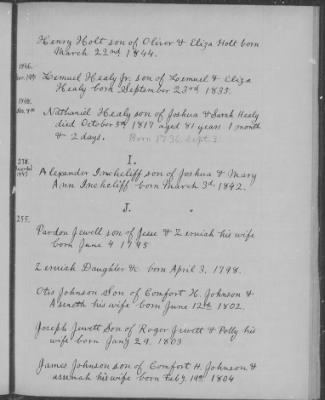 Henry Holt son of Oliver & Eliza Holt born
March 22nd 1844.
1846.
Lemuel Healy Jr. son of Lemuel & Eliza
Healy born September 23rd 1835.
Nathaniel Healy son of Joshua & Sarah Healy
died October 5th 1817 aged 81 years 1 month
& 2 days. Born 1736 Sept 3
I.
278.
Alexander Inchcliff son of Joshua & Mary
Ann Inchcliff born March 3d 1842.
J.
255.
Pardon Jewell son of Jesse & Zerniah his wife
born June 4 1795
Zerniah Daughter &c born April 3, 1798.
Otis Johnson Son of Comfort H. Johnson &
Asenath his wife born June 12th 1802.
Joseph Jewett Son of Roger Jewett & Polly his
wife born Jany 29. 1803
James Johnson son of Comfort H. Johnson &
his wife born Feby. 19th 1804